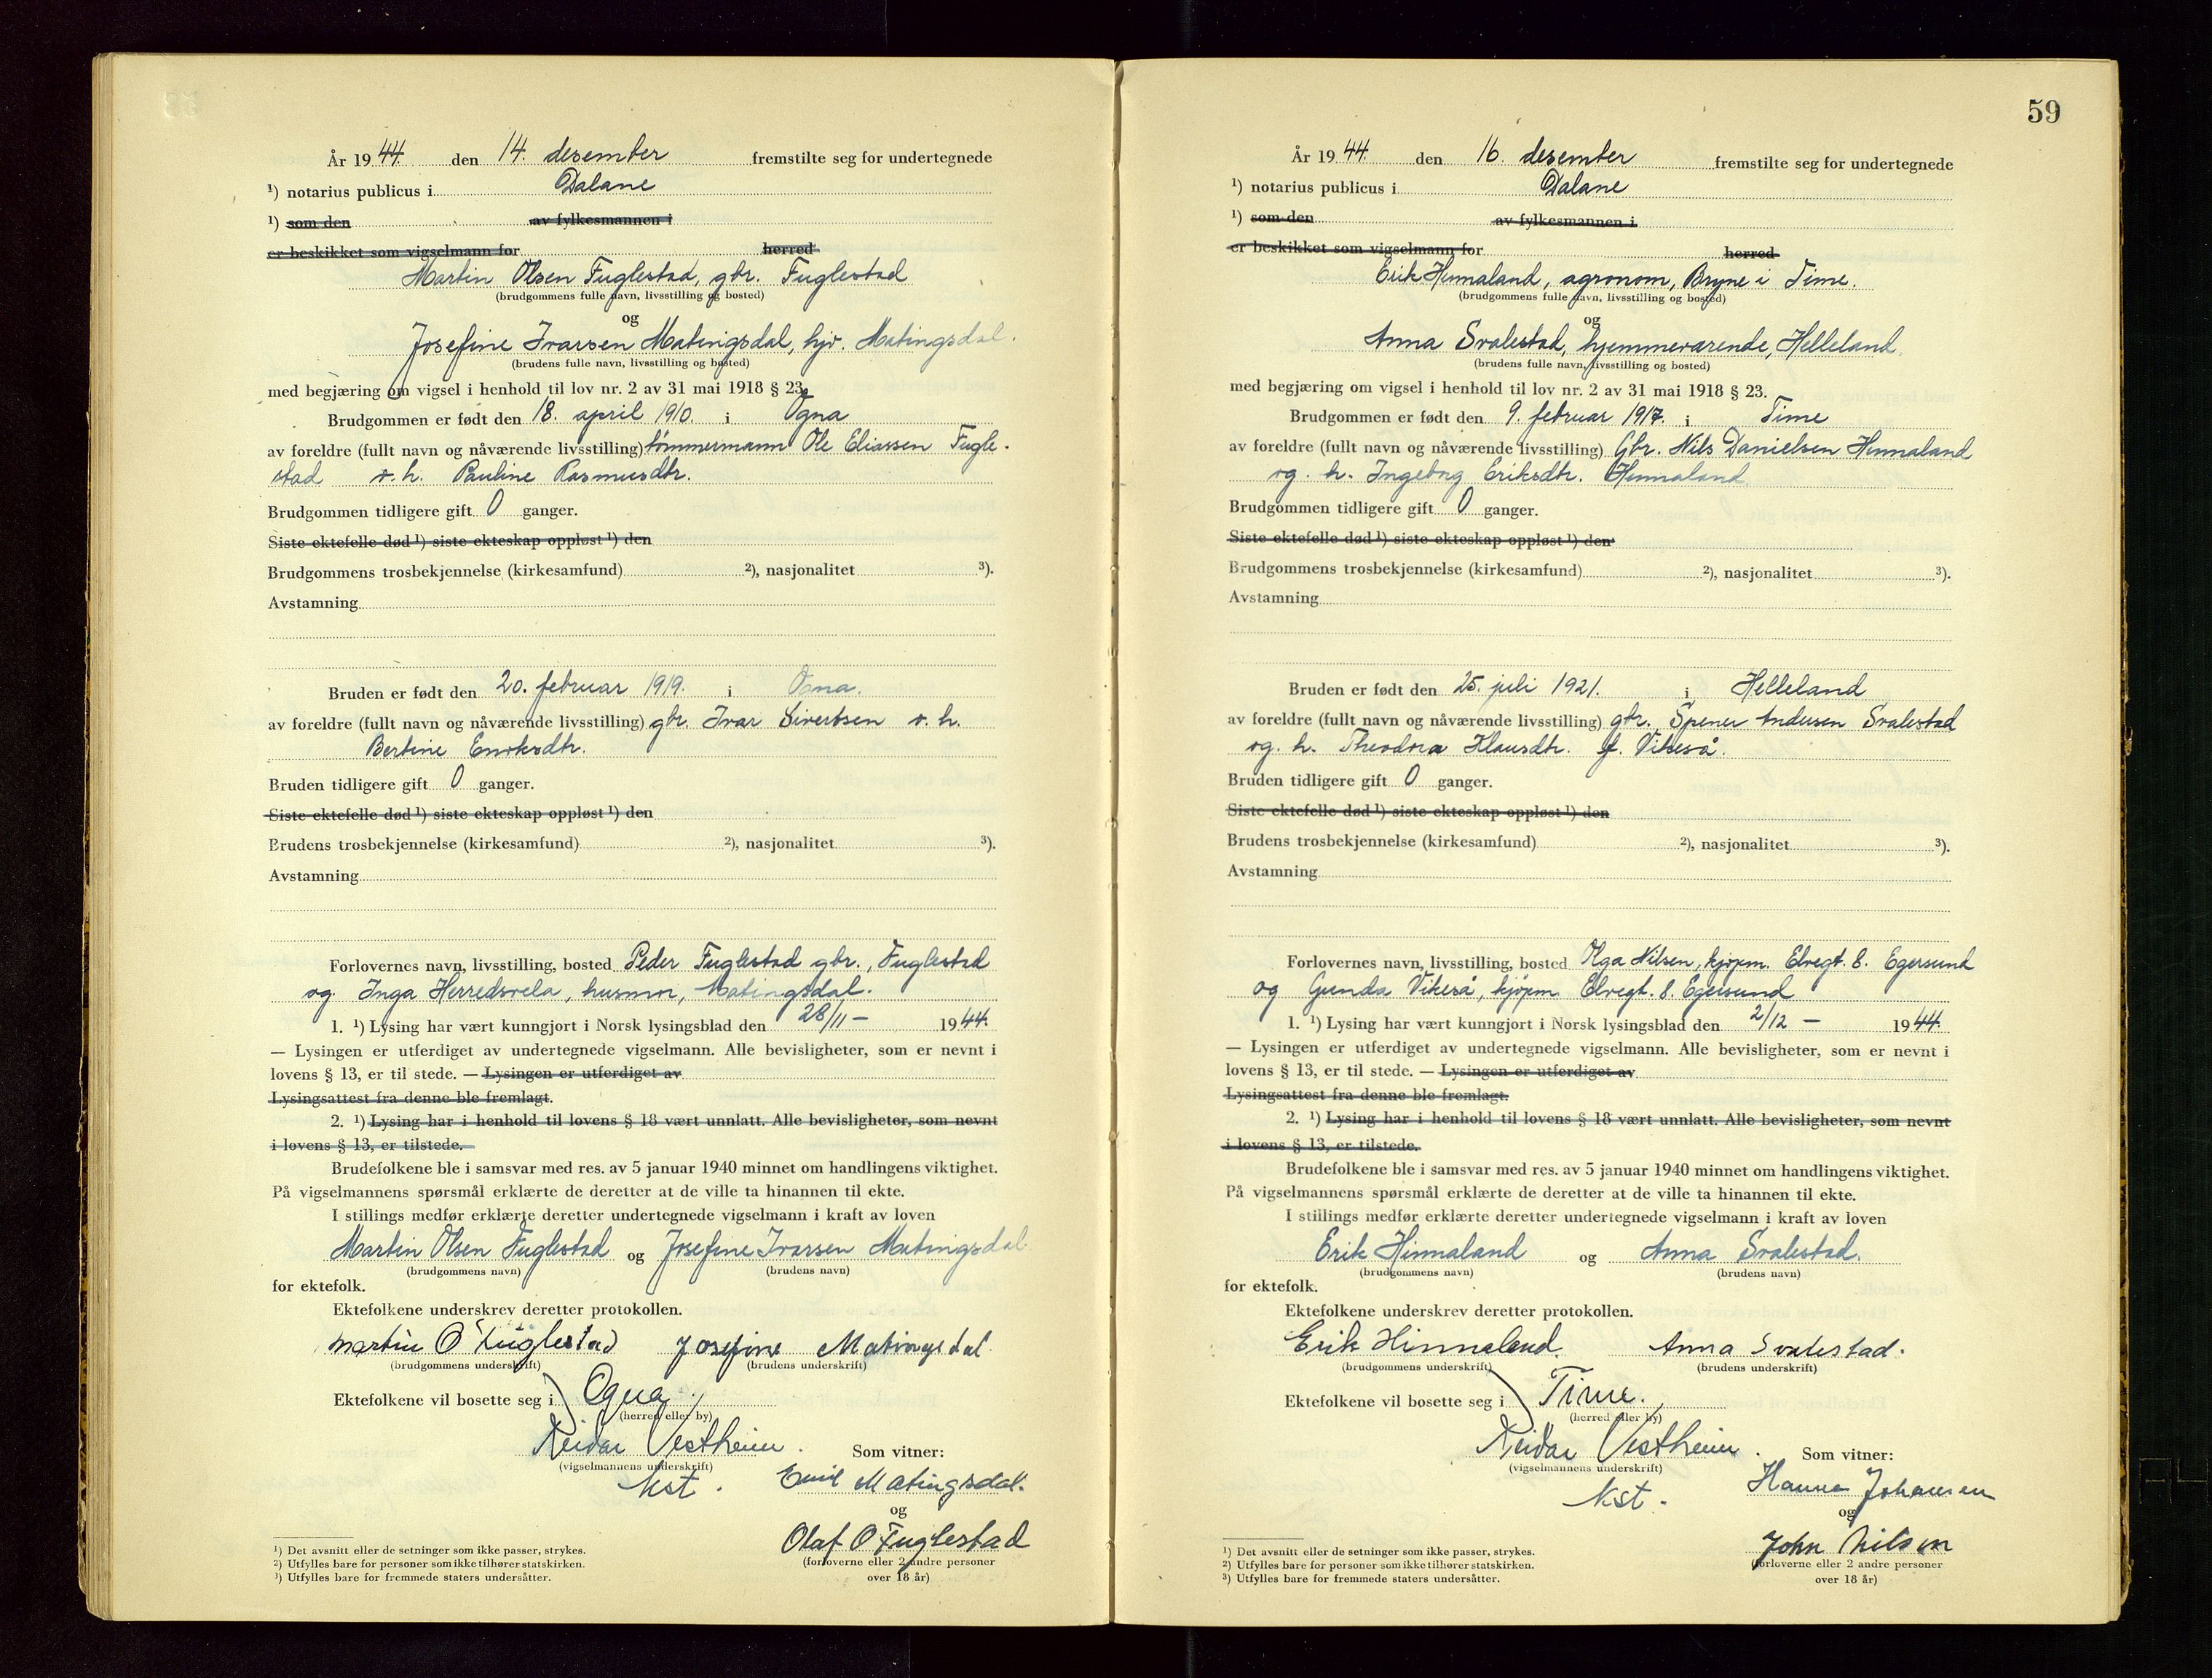 År 19 44. den 14. desember fremstilte seg for undertegnede
¹) notarius publicus i Dalane
¹) som den av fylkesmannen i
er beskikket som vigselmann for herred
Martin Olsen Fuglestad, gbr. Fuglestad
(brudgommens fulle navn, livsstilling og bosted)
og
Josefine Ivarsen Matingsdal, hjv. Matingsdal.
(brudens fulle navn, livsstilling og bosted)
med begjæring om vigsel i henhold til lov nr. 2 av 31 mai 1918 § 23.
Brudgommen er født den 18. april 1910. i Ogna
av foreldre (fullt navn og nåværende livsstilling) tømmermann Ole Eliassen Fugle-
stad o. h. Pauline Rasmusdtr.
Brudgommen tidligere gift 0 ganger.
Siste ektefelle død ¹) siste ekteskap oppløst ¹) den
Brudgommens trosbekjennelse (kirkesamfund) ²), nasjonalitet ³).
Avstamning
Bruden er født den 20. februar 1919. i Ogna.
av foreldre (fullt navn og nåværende livsstilling) gbr. Ivar Sivertsen o. h.
Bertine Enoksdtr.
Bruden tidligere gift 0 ganger.
Siste ektefelle død ¹) siste ekteskap oppløst ¹) den
Brudens trosbekjennelse (kirkesamfund) ²), nasjonalitet ³).
Avstamning
Forlovernes navn, livsstilling, bosted Peder Fuglestad gbr., Fuglestad
og Inga Herredsvela, husmor, Matingsdal.
1. ¹) Lysing har vært kunngjort i Norsk lysingsblad den 28/11 – 19 44.
— Lysingen er utferdiget av undertegnede vigselmann. Alle bevisligheter, som er nevnt i
lovens § 13, er til stede. — Lysingen er utferdiget av
Lysingsattest fra denne ble fremlagt.
2. ¹) Lysing har i henhold til lovens § 18 vært unnlatt. Alle bevisligheter, som nevnt
i lovens § 13, er tilstede.
Brudefolkene ble i samsvar med res. av 5 januar 1940 minnet om handlingens viktighet.
På vigselmannens spørsmål erklærte de deretter at de ville ta hinannen til ekte.
I stillings medfør erklærte deretter undertegnede vigselmann i kraft av loven
Martin Olsen Fuglestad og Josefine Ivarsen Matingsdal
(brudgommens navn) (brudens navn)
for ektefolk.
Ektefolkene underskrev deretter protokollen.
Martin O Fuglestad Josefine Matingsdal
(brudgommens underskrift) (brudens underskrift)
Ektefolkene vil bosette seg i Ogna.
(herred eller by)
Reidar Vestheim. Som vitner:
(vigselmannens underskrift)
kst. Emil Matingsdal.
og
Olaf O Fuglestad
(forloverne eller 2 andre personer
over 18 år)
¹) Det avsnitt eller de setninger som ikke passer, strykes.
²) Utfylles bare for personer som ikke tilhører statskirken.
³) Utfylles bare for fremmede staters undersåtter.
59
År 19 44. den 16. desember fremstilte seg for undertegnede
¹) notarius publicus i Dalane
¹) som den av fylkesmannen i
er beskikket som vigselmann for herred
Erik Hinnaland, agronom, Bryne i Time.
(brudgommens fulle navn, livsstilling og bosted)
og
Anna Svalestad, hjemmeværende, Helleland.
(brudens fulle navn, livsstilling og bosted)
med begjæring om vigsel i henhold til lov nr. 2 av 31 mai 1918 § 23.
Brudgommen er født den 9. februar 1917. i Time
av foreldre (fullt navn og nåværende livsstilling) Gbr. Nils Danielsen Hinnaland
og. h. Ingeborg Eriksdtr. Hinnaland
Brudgommen tidligere gift 0 ganger.
Siste ektefelle død ¹) siste ekteskap oppløst ¹) den
Brudgommens trosbekjennelse (kirkesamfund) ²), nasjonalitet ³).
Avstamning
Bruden er født den 25. juli 1921. i Helleland
av foreldre (fullt navn og nåværende livsstilling) gbr. Spener Andersen Svalestad
og. h. Theodora Klausdtr. f. Vikeså.
Bruden tidligere gift 0 ganger.
Siste ektefelle død ¹) siste ekteskap oppløst ¹) den
Brudens trosbekjennelse (kirkesamfund) ²), nasjonalitet ³).
Avstamning
Forlovernes navn, livsstilling, bosted Olga Nilsen, kjøpm. Elvegt. 8. Egersund
og Gunda Vikeså, kjøpm Elvegt. 8. Egersund
1. ¹) Lysing har vært kunngjort i Norsk lysingsblad den 2/12 – 19 44.
— Lysingen er utferdiget av undertegnede vigselmann. Alle bevisligheter, som er nevnt i
lovens § 13, er til stede. — Lysingen er utferdiget av
Lysingsattest fra denne ble fremlagt.
2. ¹) Lysing har i henhold til lovens § 18 vært unnlatt. Alle bevisligheter, som nevnt
i lovens § 13, er tilstede.
Brudefolkene ble i samsvar med res. av 5 januar 1940 minnet om handlingens viktighet.
På vigselmannens spørsmål erklærte de deretter at de ville ta hinannen til ekte.
I stillings medfør erklærte deretter undertegnede vigselmann i kraft av loven
Erik Hinnaland og Anna Svalestad.
(brudgommens navn) (brudens navn)
for ektefolk.
Ektefolkene underskrev deretter protokollen.
Erik Hinnaland. Anna Svalestad.
(brudgommens underskrift) (brudens underskrift)
Ektefolkene vil bosette seg i Time.
(herred eller by)
Reidar Vestheim. Som vitner:
(vigselmannens underskrift)
kst. Hanna Johansen
og
John Nilsen
(forloverne eller 2 andre personer
over 18 år)
¹) Det avsnitt eller de setninger som ikke passer, strykes.
²) Utfylles bare for personer som ikke tilhører statskirken.
³) Utfylles bare for fremmede staters undersåtter.